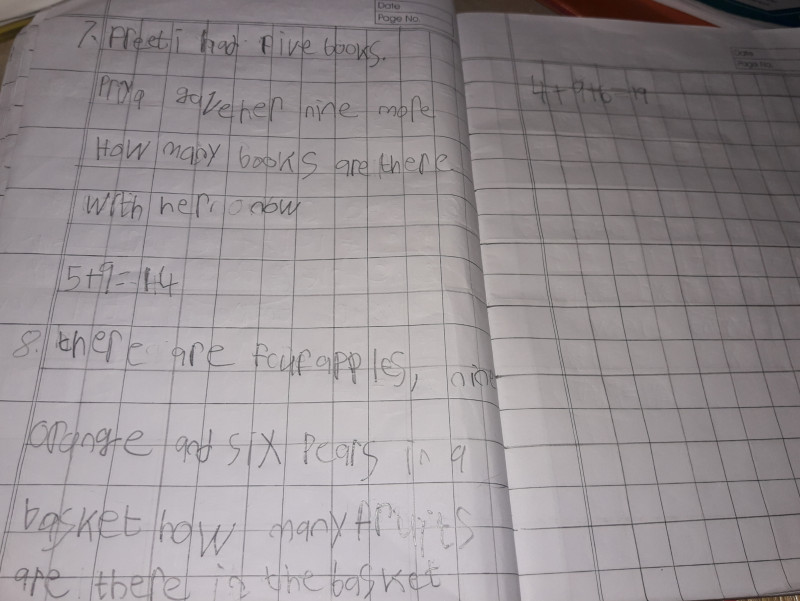 Date
Page No.
7. Preeti had five books.
Priya gave her nine more
How many books are there
with her now
5+9=14
8. there are four apples, nine
orangte and six pears in a
basket how many fruits
are there in the basket
Date
Page No.
4+9+6=19